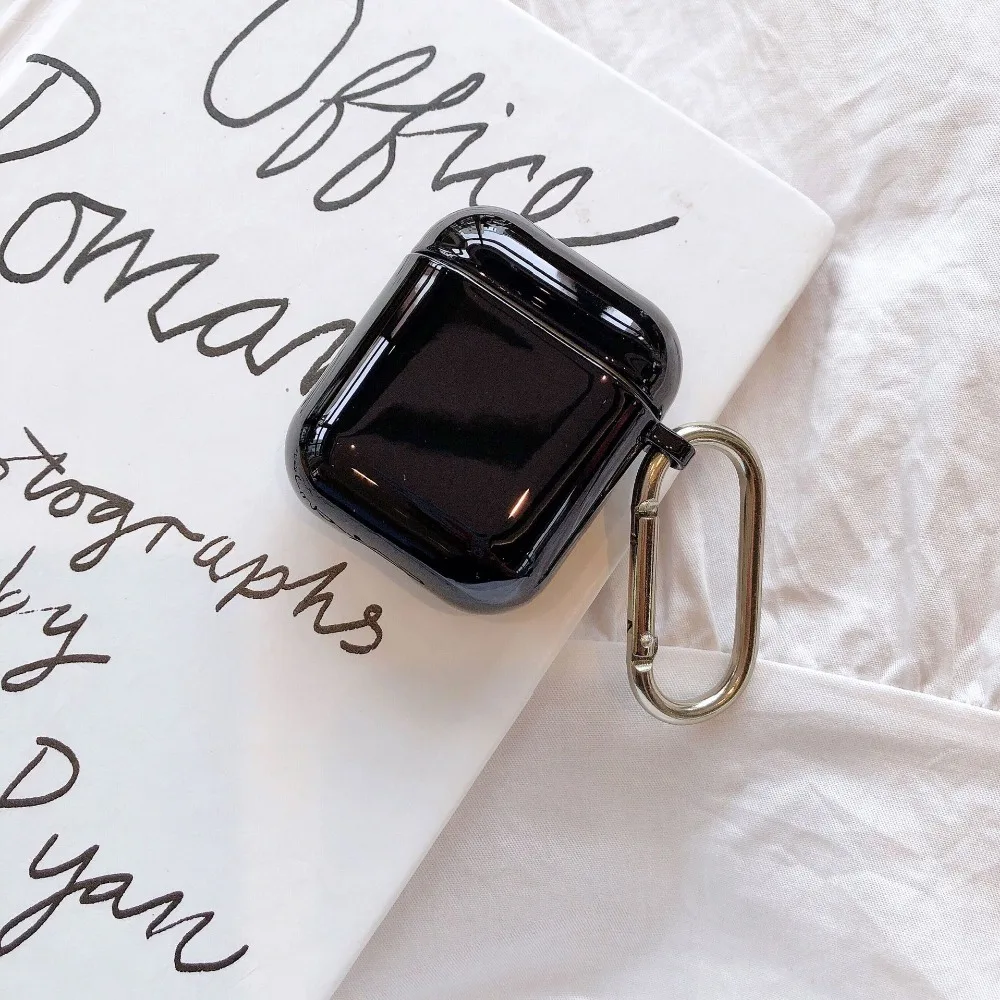 Office
Doman
tographs
by
D
yan